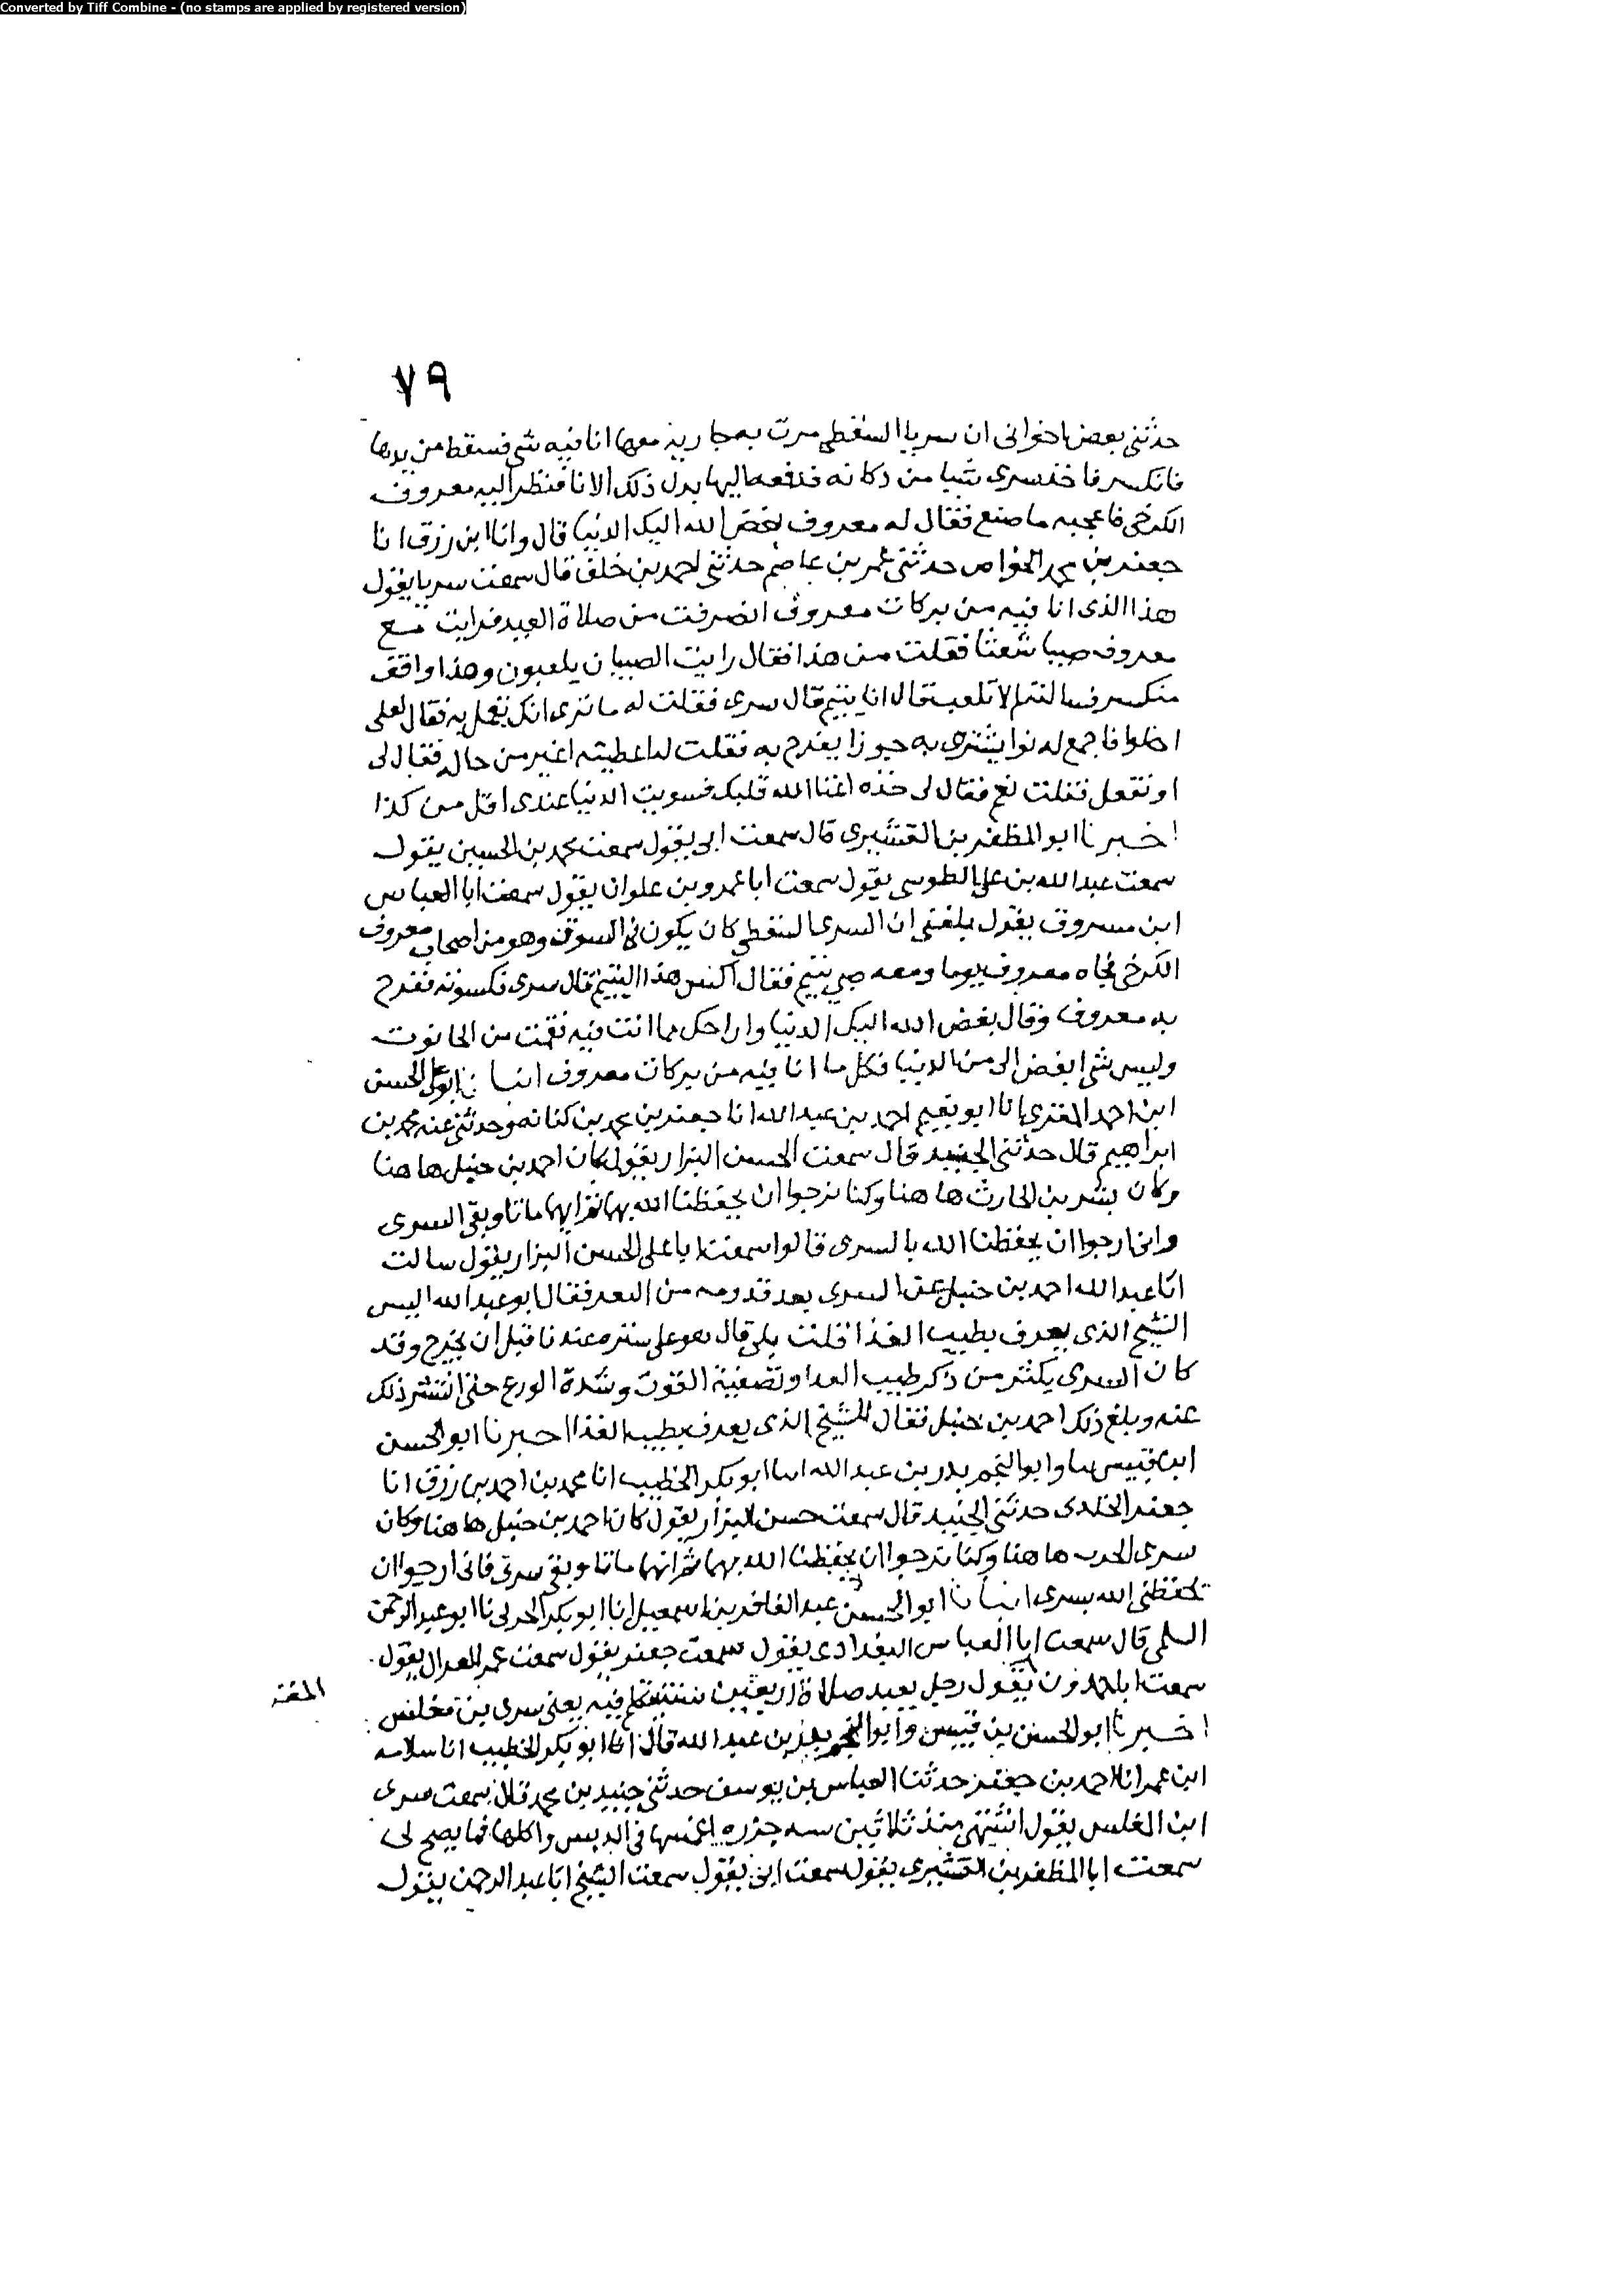 Converted by Tiff Combine - (no stamps are applied by registered version)
٧٩
حدثني بعض اخواني ان سريا السقطي مرت به جارية معها انا فيه شي فسقط من يدها
فانكسر فاخذ سري شيا من دكانه فدفعه اليها بدل ذلك الانا فنظر اليه معروف
الكرخي فاعجبه ما صنع فقال له معروف بغض الله اليك الدنيا قال وانا ابن رزق انا
جعفر بن محمد الخواص حدثني عمر بن عاصم حدثني احمد بن خلف قال سمعت سريا يقول
هذا الذي انا فيه من بركات معروف انصرفت من صلاة العيد فرايت مع
معروف صبيا شعثا فقلت من هذا فقال رايت الصبيان يلعبون وهذا واقف
منكسر فسالته لم لا تلعب قال انا يتيم قال سري فقلت له ما ترى انك تعمل به فقال لعلي
اخلوا فاجمع له نوا يشترى به جوزا يفرح به فقلت له اعطنيه اغير من حاله فقال لي
او تفعل فقلت نعم فقال لي خذه اغنا الله قلبك فسويت الدنيا عندي اقل من كذا
اخبرنا ابو المظفر بن القشيري قال سمعت ابي يقول سمعت محمد بن الحسين يقول
سمعت عبد الله بن علي الطوسي يقول سمعت ابا عمرو بن علوان يقول سمعت ابا العباس
ابن مسروق يقول بلغني ان السري السقطي كان يكون في السوق وهو من اصحاب معروف
الكرخي فجاه معروف يوما ومعه صبي يتيم فقال اكس هذا اليتيم قال سري فكسوته ففرح
به معروف وقال بغض الله اليك الدنيا واراحك مما انت فيه فقمت من الحانوت
وليس شي ابغض الي من الدنيا فكل ما انا فيه من بركات معروف انبانا ابو علي الحسن
ابن احمد المقري انا ابو نعيم احمد بن عبد الله انا جعفر بن محمد بن كتابه وحدثني عنه محمد بن
ابراهيم قال حدثني الجنيد قال سمعت الحسن البزار يقول كان احمد بن حنبل ها هنا
وكان بشر بن الحارث ها هنا وكنا نرجوا ان يحفظنا الله بهما ثم انهما ماتا وبقي السري
واني ارجوا ان يحفظنا الله بالسري قالوا سمعت ابا علي الحسن البزار يقول سالت
ابا عبد الله احمد بن حنبل عن السري بعد قدومه من الثغر فقال ابو عبد الله اليس
الشيخ الذي يعرف بطيب الغذا قلت بلى قال هو على ستره عندنا قبل ان يخرج وقد
كان السري يكثر من ذكر طيب الغدا وتصفية القوت وشدة الورع حتى انتشر ذلك
عنه وبلغ ذلك احمد بن حنبل فقال الشيخ الذي يعرف بطيب الغذا اخبرنا ابو الحسن
ابن قبيس وابو النجم بدر بن عبد الله انبا ابو بكر الخطيب انا محمد بن احمد بن رزق انا
جعفر الخلدي حدثني الجنيد قال سمعت حسن البزار يقول كان احمد بن حنبل ها هنا وكان
ها هنا وكنا نرجوا ان يحفظنا الله بهما ثم انهما ماتا وبقي سري فاني ارجوا ان
يحفظني الله بسري انبانا ابو الحسن عبد الغافر بن اسمعيل انا ابو بكر انا ابو عبد الرحمن
السلمي قال سمعت ابا العباس البغدادي يقول سمعت جعفر يقول سمعت عمر يقول
سمعت يقول رجل يعيد صلاة اربعين سنة فيه يعني سري بن مغلس
اخبرنا ابو الحسن بن قبيس وابو النجم بدر بن عبد الله قالا انا ابو بكر الخطيب انا سلامه
ابن عمر انا احمد بن جعفر حدثنا العباس بن يوسف حدثني جنيد بن محمد قال سمعت سري
ابن المغلس يقول اشتهي منذ ثلاثين سنه جزره اغمسها في الدبس واكلها فما يصح لي
سمعت ابا المظفر بن القشيري يقول سمعت ابي يقول سمعت الشيخ ابا عبد الرحمن يقول